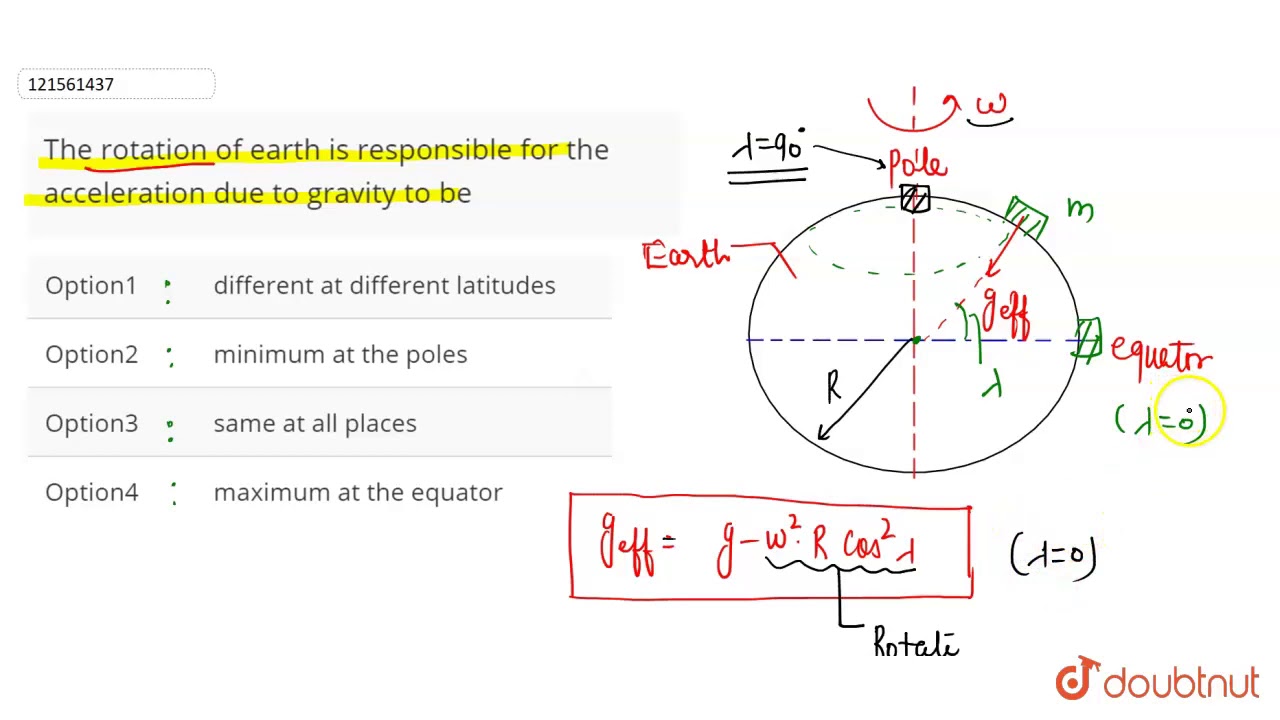 121561437
The rotation of earth is responsible for the
acceleration due to gravity to be
Option1 : different at different latitudes
Option2 : minimum at the poles
Option3 : same at all places
Option4 : maximum at the equator
ω
λ=90°
Pole
m
Earth
geff
equator
λ
R
(λ=0°)
geff = g-ω²·R cos²λ
(λ=0)
Rotate
doubtnut